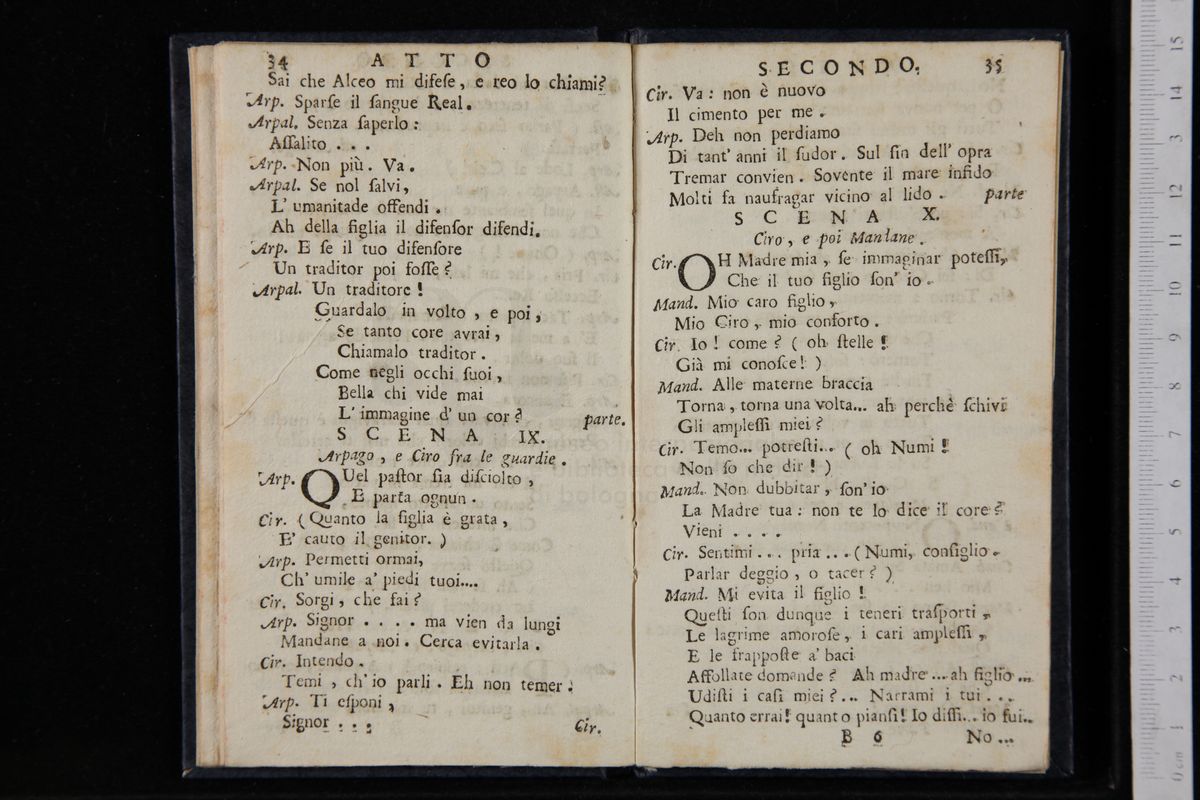 34 ATTO
Sai che Alceo mi difeſe, e reo lo chiami?
Arp. Sparſe il ſangue Real.
Arpal. Senza ſaperlo:
Aſſalito . . .
Arp. Non più. Va.
Arpal. Se nol ſalvi,
L' umanitade offendi.
Ah della figlia il difenſor difendi.
Arp. E ſe il tuo difenſore
Un traditor poi foſſe?
Arpal. Un traditore!
Guardalo in volto, e poi,
Se tanto core avrai,
Chiamalo traditor.
Come negli occhi ſuoi,
Bella chi vide mai
L' immagine d' un cor? parte.
SCENA IX.
Arpago, e Ciro fra le guardie.
Arp. QUel paſtor ſia diſciolto,
E parta ognun.
Cir. (Quanto la figlia è grata,
E' cauto il genitor. )
Arp. Permetti ormai,
Ch' umile a' piedi tuoi....
Cir. Sorgi, che fai?
Arp. Signor . . . . ma vien da lungi
Mandane a noi. Cerca evitarla.
Cir. Intendo.
Temi, ch' io parli. Eh non temer.
Arp. Ti eſponi,
Signor . . .
Cir.
SECONDO. 35
Cir. Va: non è nuovo
Il cimento per me.
Arp. Deh non perdiamo
Di tant' anni il ſudor. Sul fin dell' opra
Tremar convien. Sovente il mare infido
Molti fa naufragar vicino al lido. parte
SCENA X.
Ciro, e poi Mandane.
Cir. OH Madre mia, ſe immaginar poteſſi,
Che il tuo figlio ſon' io.
Mand. Mio caro figlio,
Mio Ciro, mio conforto.
Cir. Io! come? ( oh ſtelle!
Già mi conoſce! )
Mand. Alle materne braccia
Torna, torna una volta... ah perchè ſchivi
Gli ampleſſi miei?
Cir. Temo... potreſti... ( oh Numi!
Non ſo che dir! )
Mand. Non dubbitar, ſon' io
La Madre tua: non te lo dice il core?
Vieni . . . .
Cir. Sentimi... pria... (Numi, conſiglio.
Parlar deggio, o tacer? )
Mand. Mi evita il figlio!
Queſti ſon dunque i teneri traſporti,
Le lagrime amoroſe, i cari ampleſſi,
E le frappoſte a' baci
Affollate domande? Ah madre... ah figlio...
Udiſti i caſi miei?... Narrami i tui...
Quanto errai! quanto pianſi! Io diſſi... io fui..
B 6 No...